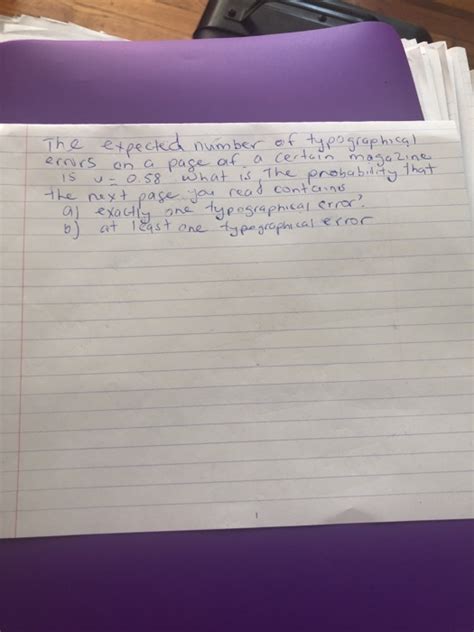 The expected number of typographical
errors on a page of a certain magazine
is u = 0.58 what is, The probability that
the next page you read contains
a) exactly one typographical error?
b) at least one typographical error
1